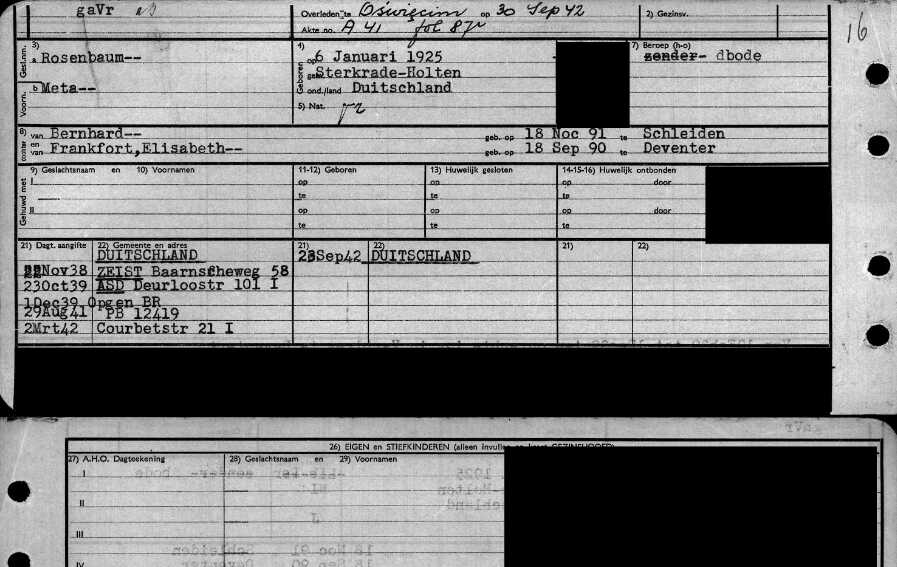 gaVr
Overleden te Oświęcim op 30 Sep 42
Akte no. A 41 fol 87v
2) Gezinsv.
16
3)
Gesl.nm. a Rosenbaum--
Voorn. b Meta--
4)
Geboren op 6 Januari 1925
ge Sterkrade-Holten
ond./land Duitschland
5) Nat.
7) Beroep (h-o)
zonder- dbode
8) van Bernhard-- geb. op 18 Noc 91 te Schleiden
en van Frankfort,Elisabeth-- geb. op 18 Sep 90 te Deventer
Gehuwd met
9) Geslachtsnaam en 10) Voornamen
I
II
11-12) Geboren
op
te
op
te
13) Huwelijk gesloten
op
te
op
te
14-15-16) Huwelijk ontbonden
op door
te
op door
te
21) Dagt. aangifte 22) Gemeente en adres
DUITSCHLAND
22Nov38 ZEIST Baarnscheweg 58
23Oct39 ASD Deurloostr 101 I
1Dec39 Opgen BR
29Aug41 PB 12419
2Mrt42 Courbetstr 21 I
21) 22)
23Sep42 DUITSCHLAND
21) 22)
26) EIGEN en STIEFKINDEREN (alleen invullen
27) A.H.O. Dagtoekening 28) Geslachtsnaam en 29) Voornamen
I
II
III
IV